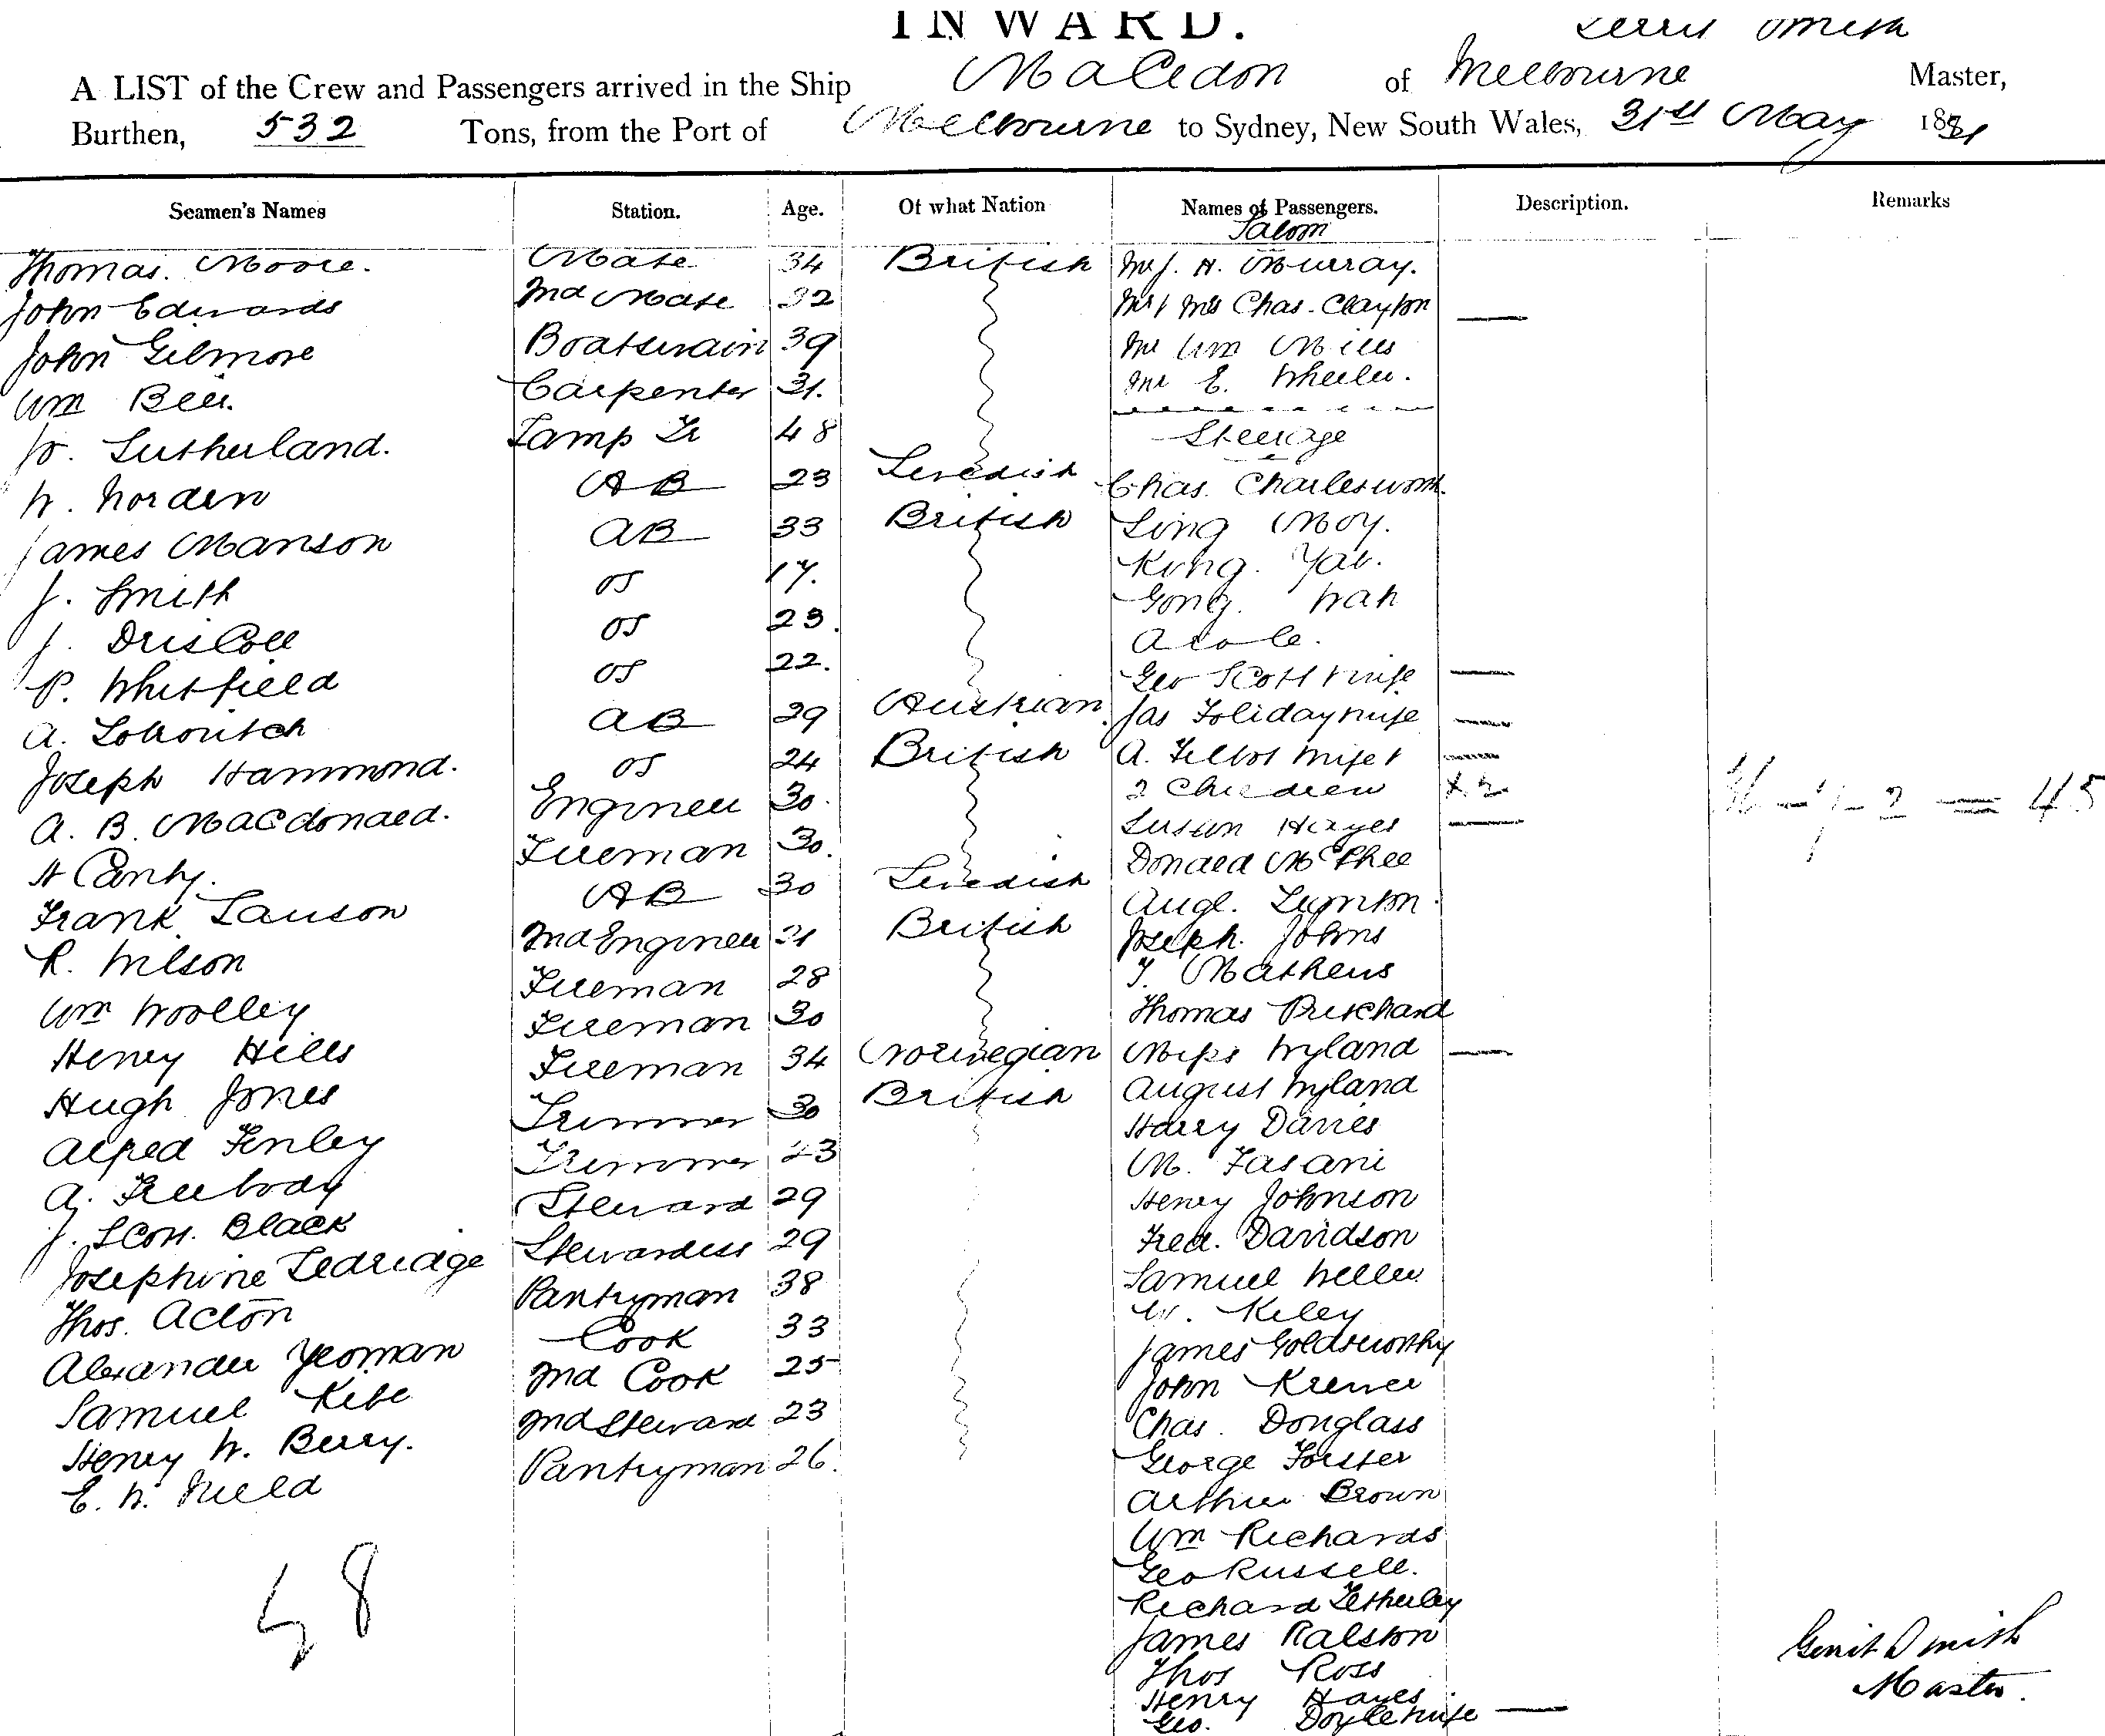 INWARD.
A LIST of the Crew and Passengers arrived in the Ship Macedon of Melbourne Smith Master,
Burthen, 532 Tons, from the Port of Melbourne to Sydney, New South Wales, 31st May 1881
Seamen's Names Station. Age. Of what Nation Names of Passengers. Description. Remarks
Saloon
Thomas. Moore. Mate 34 British Mr J. H. Murray.
John Edwards 2nd Mate 32 Mr & Mrs Chas. Clayton —
John Gilmore Boatswain 39 Mr Wm Mills
Wm Bell. Carpenter 31. Mr E. Wheeler.
W. Sutherland. Lamp Tr 48 Steerage
W. Norden AB 23 Swedish Chas. Charlesworth.
James Manson AB 33 British Ling Moy.
J. Smith OS 17. Kong.
J. Driscoll OS 23. Gong. Wah
P. Whitfield OS 22.
A. AB 29 Austrian Geo Scott & wife —
Joseph Hammond. OS 24 British Jas & wife —
A. B. MacDonald. Engineer 30. A. & wife &
2 Children x 2
H Canty. Fireman 30. Susan Hayes —
Frank Lauson AB 30 Swedish Donald McPhee
R. Wilson 2nd Engineer 31 British Joseph. Johns
Wm Woolley Fireman 28 T. Mathews
Henry Hills Fireman 30 Thomas Pritchard
Hugh Jones Fireman 34 Norwegian Miss Wyland —
Alfred Fenley Trimmer 30 British August Wyland
A. Freebody Trimmer 23 Harry Davies
J. Scott. Black Steward 29 M. Fasani
Josephine Ledridge Stewardess 29 Henry Johnson
Thos. Acton Pantryman 38 Fred. Davidson
Alexander Yeoman Cook 33 Samuel Weller
Samuel 2nd Cook 25 W. Kiley
Henry W. Berry. 2nd Steward 23 James Goldsworthy
E. W. Pantryman 26. John
Chas. Douglass
George Forster
Arthur Brown
Wm Richards
Geo Russell.
Richard Tetherley
James Ralston
Thos Ross
Henry Hayes
Geo. Doyle & wife —
= 45
58
Gerrit Smith
Master.